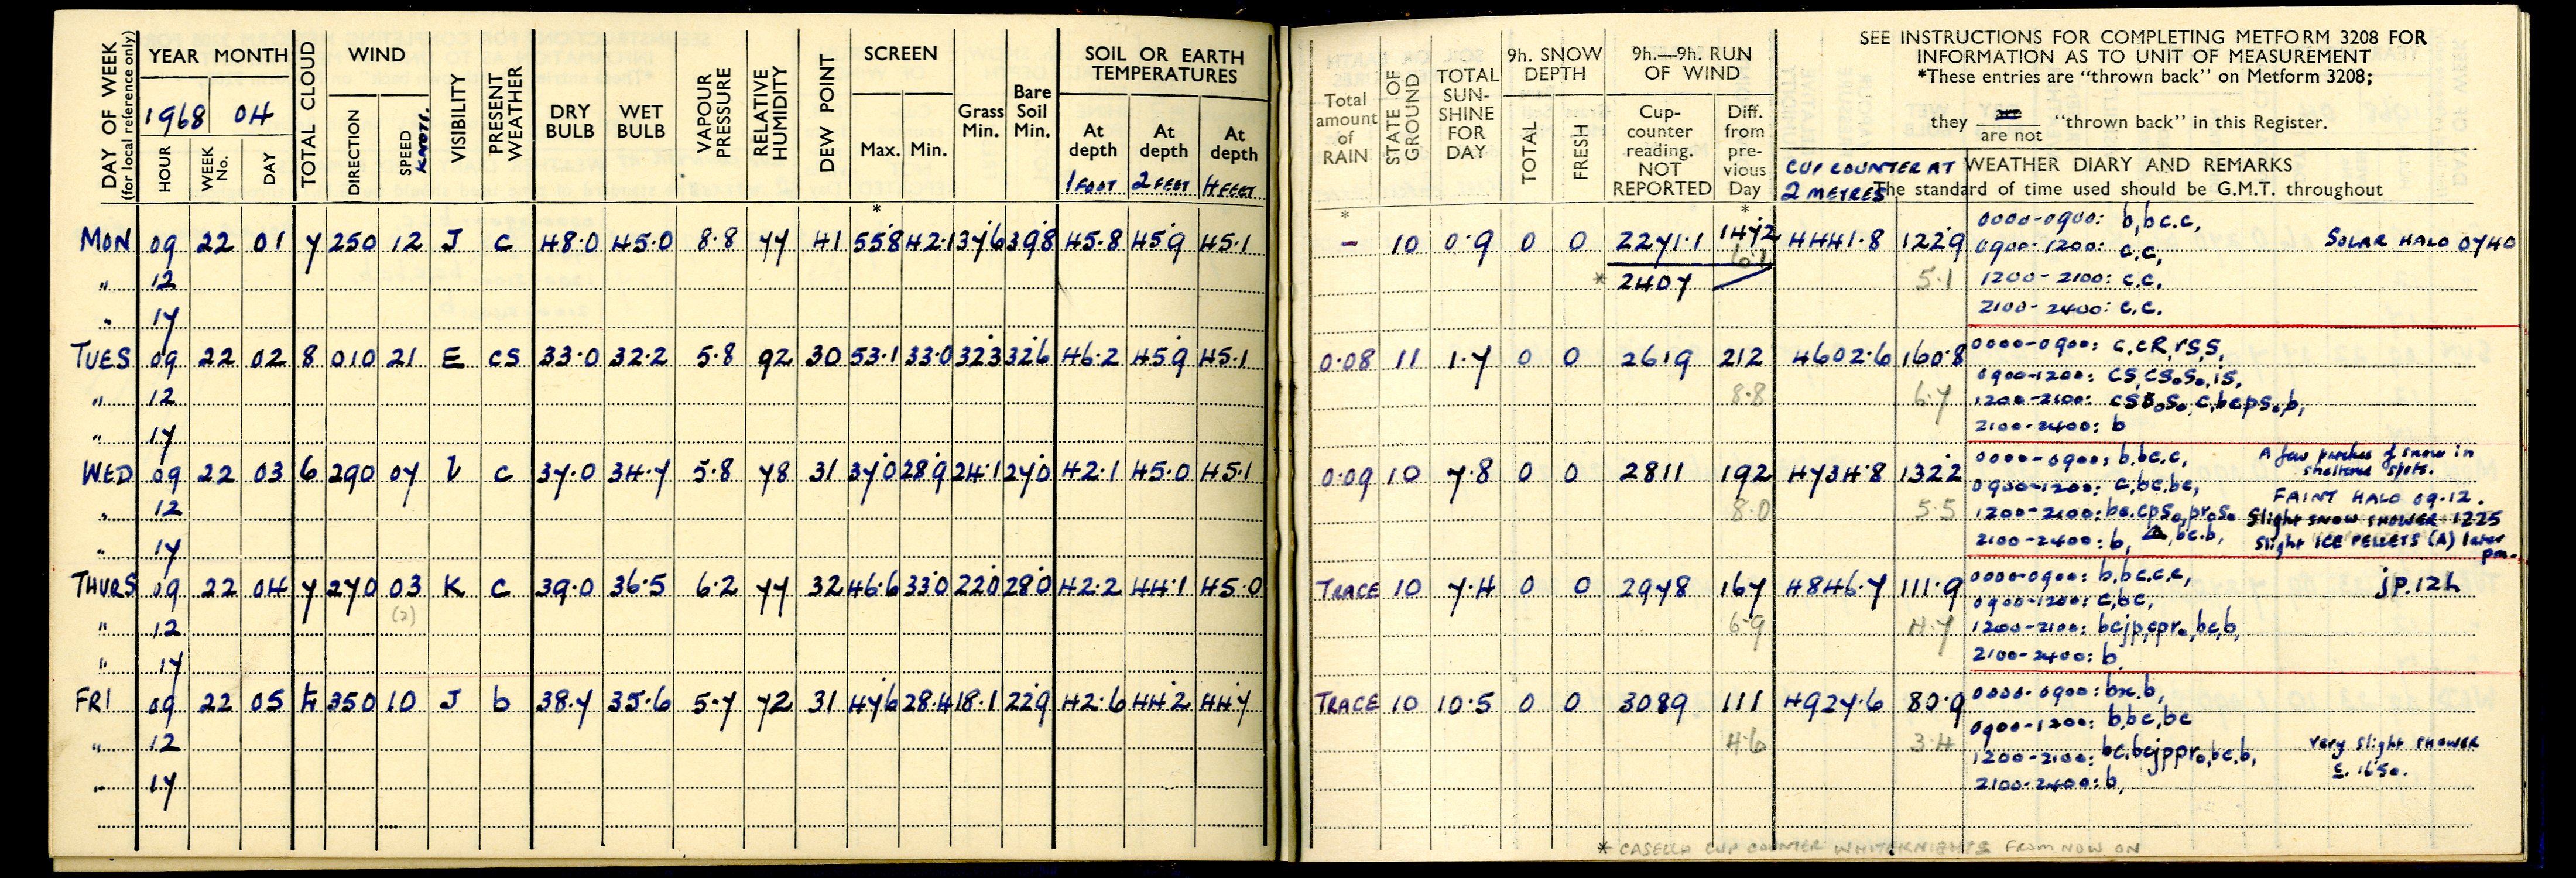 DAY OF WEEK
(for local reference only)
YEAR MONTH
1968 04
HOUR
WEEK No.
DAY
TOTAL CLOUD
WIND
DIRECTION
SPEED
KNOTS.
VISIBILITY
PRESENT WEATHER
DRY BULB
WET BULB
VAPOUR PRESSURE
RELATIVE HUMIDITY
DEW POINT
SCREEN
Max. Min.
*
Grass Min.
Bare Soil Min.
SOIL OR EARTH
TEMPERATURES
At depth 1 FOOT
At depth 2 FEET
At depth 4 FEET
Total amount of RAIN
*
STATE OF GROUND
TOTAL SUN-SHINE FOR DAY
9h. SNOW DEPTH
TOTAL
FRESH
9h.—9h. RUN OF WIND
Cup-counter reading. NOT REPORTED
Diff. from pre-vious Day
*
SEE INSTRUCTIONS FOR COMPLETING METFORM 3208 FOR
INFORMATION AS TO UNIT OF MEASUREMENT
*These entries are "thrown back" on Metform 3208;
they are / are not "thrown back" in this Register.
CUP COUNTER AT
2 METRES
WEATHER DIARY AND REMARKS
The standard of time used should be G.M.T. throughout
MON 09 22 01 7 250 12 J c 48.0 45.0 8.8 77 41 55.8 42.1 37.6 39.8 45.8 45.9 45.1 – 10 0.9 0 0 2271.1 147.2 4441.8 122.9
6.1
" 12 * 2407 5.1
" 17
0000-0900: b,bc.c, SOLAR HALO 0740
0900-1200: c.c,
1200-2100: c.c.
2100-2400: c.c.
TUES 09 22 02 8 010 21 E cs 33.0 32.2 5.8 92 30 53.1 33.0 32.3 32.6 46.2 45.9 45.1 0.08 11 1.7 0 0 2619 212 4602.6 160.8
" 12 8.8 6.7
" 17
0000-0900: c,cR,rS,S,
0900-1200: cS,cSoSo,iS,
1200-2100: So, c,bcpso,b,
2100-2400: b
WED 09 22 03 6 290 07 c 37.0 34.7 5.8 78 31 37.0 28.9 24.1 27.0 42.1 45.0 45.1 0.09 10 7.8 0 0 2811 192 4734.8 132.2
" 12 8.0 5.5
" 17
0000-0900: b,bc.c, A few patches of snow in
sheltered spots.
0900-1200: c,bc,bc, FAINT HALO 09-12.
1200-2100: bc,cpso,proSo Slight SNOW SHOWER 1225
2100-2400: b, bc.b, Slight ICE PELLETS (A) later
pm.
THURS 09 22 04 7 270 03 K c 39.0 36.5 6.2 77 32 46.6 33.0 22.0 28.0 42.2 44.1 45.0 TRACE 10 7.4 0 0 2978 167 4846.7 111.9
(2)
" 12 6.9 4.7
" 17
0000-0900: b,bc.c.c, jp.12h
0900-1200: c,bc,
1200-2100: bcjp,cpro,bc,b,
2100-2400: b,
FRI 09 22 05 350 10 J b 38.7 35.6 5.7 72 31 47.6 28.4 18.1 22.9 42.6 44.2 44.7 TRACE 10 10.5 0 0 3089 111 4927.6 80.9
" 12 4.6 3.4
" 17
0000-0900: bx.b,
0900-1200: b,bc,bc
1200-2100: bc,bcjppro,bc.b, very slight shower
c. 1650.
2100-2400: b,
* CASELLA CUP COUNTER WHITEKNIGHTS FROM NOW ON